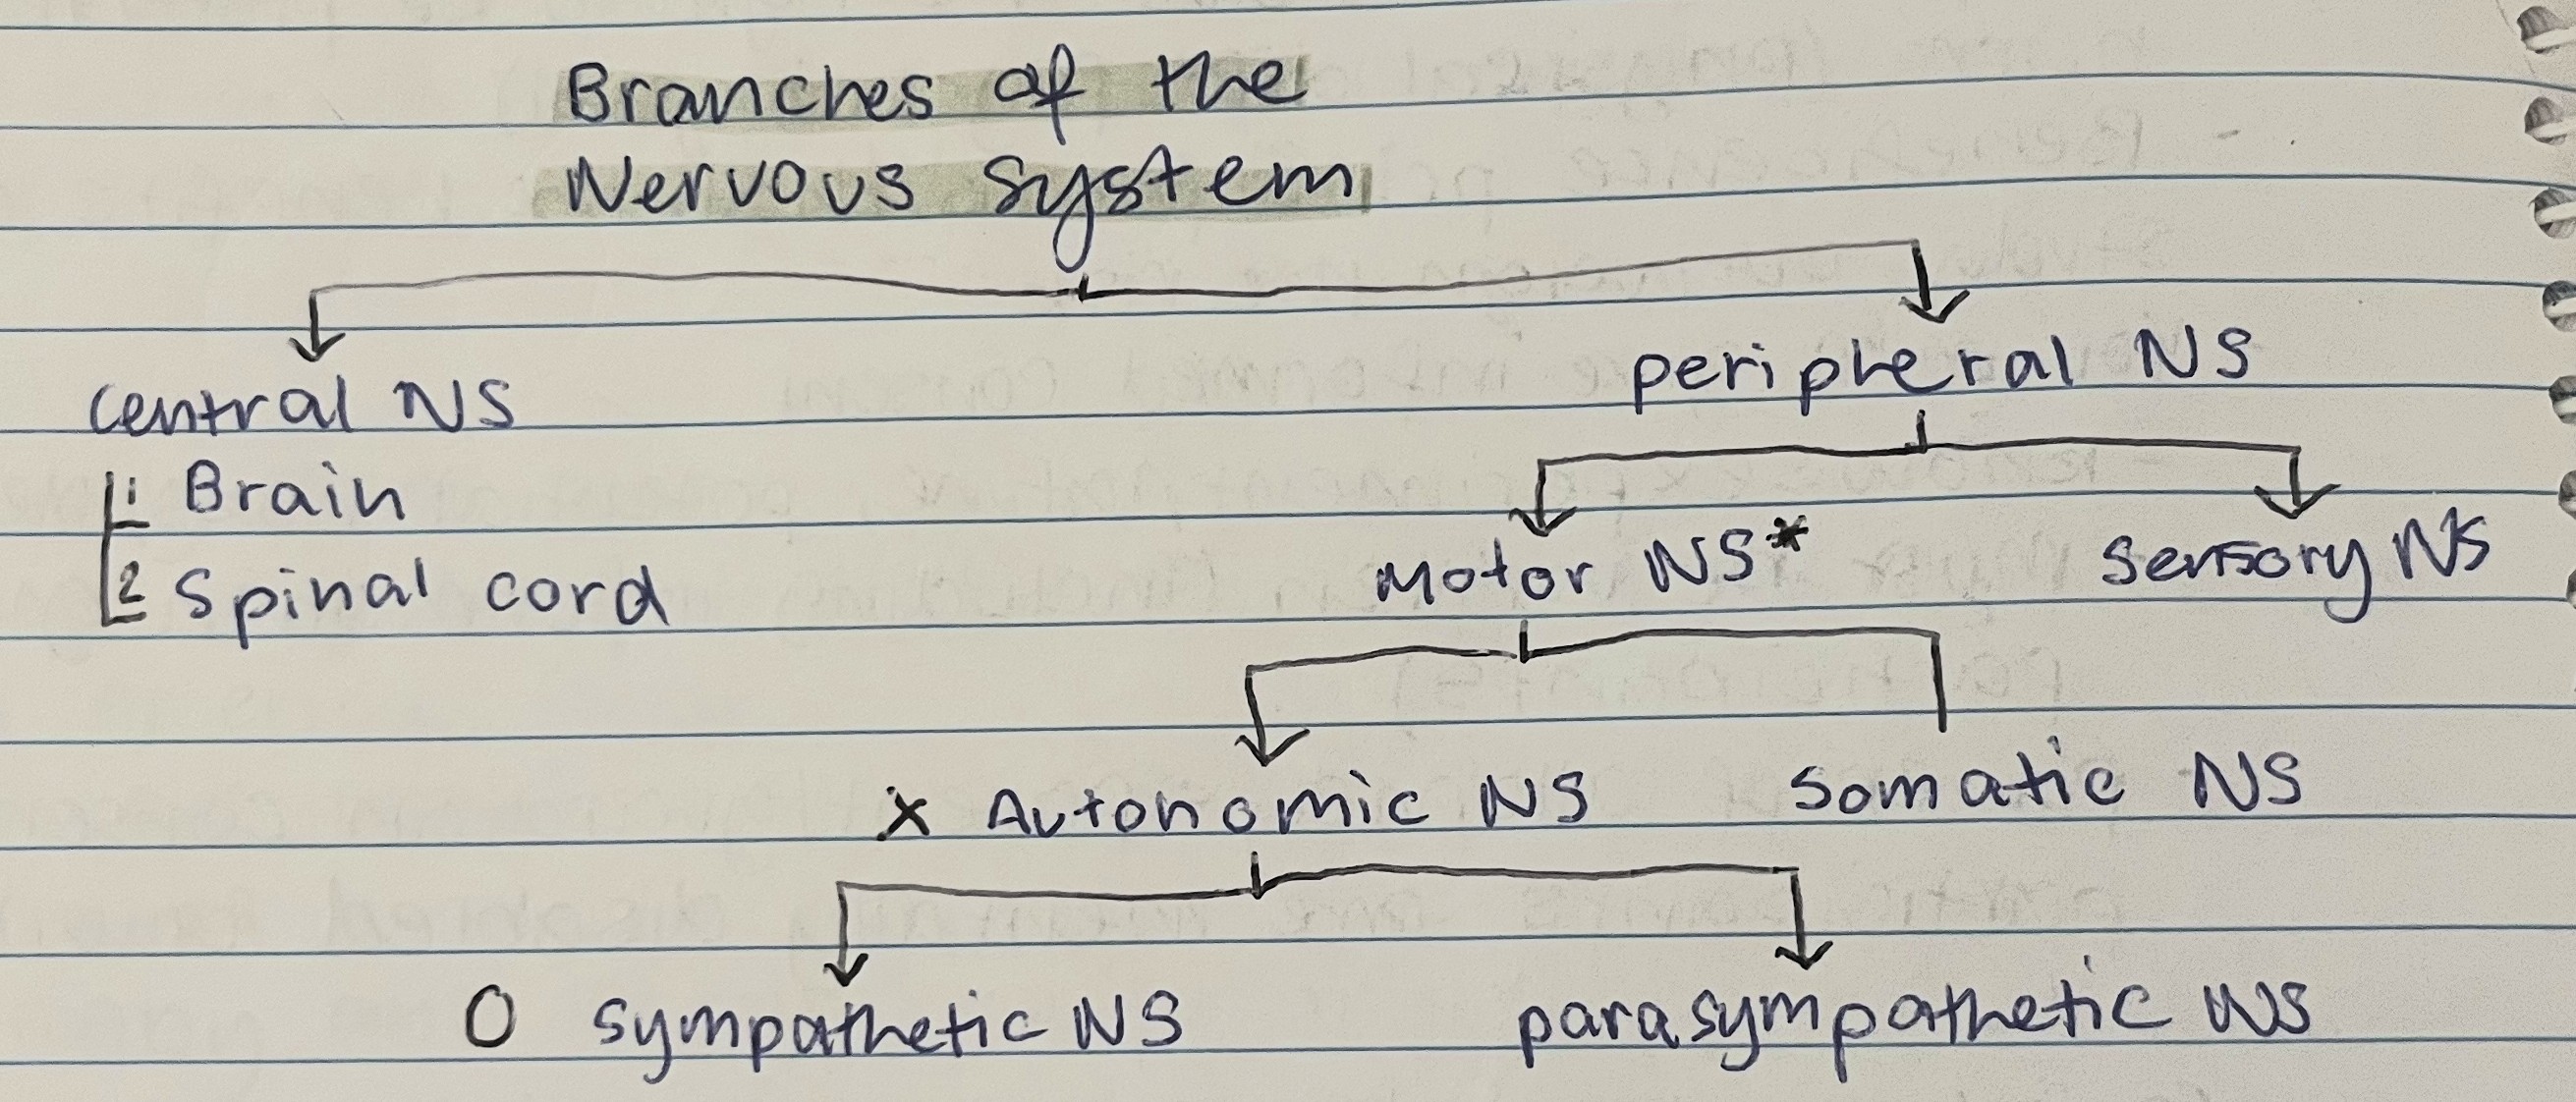 Branches of the
Nervous system
Central NS
peripheral NS
1 Brain
2 Spinal cord
Motor NS*
Sensory NS
x Autonomic NS
Somatic NS
O sympathetic NS
parasympathetic NS